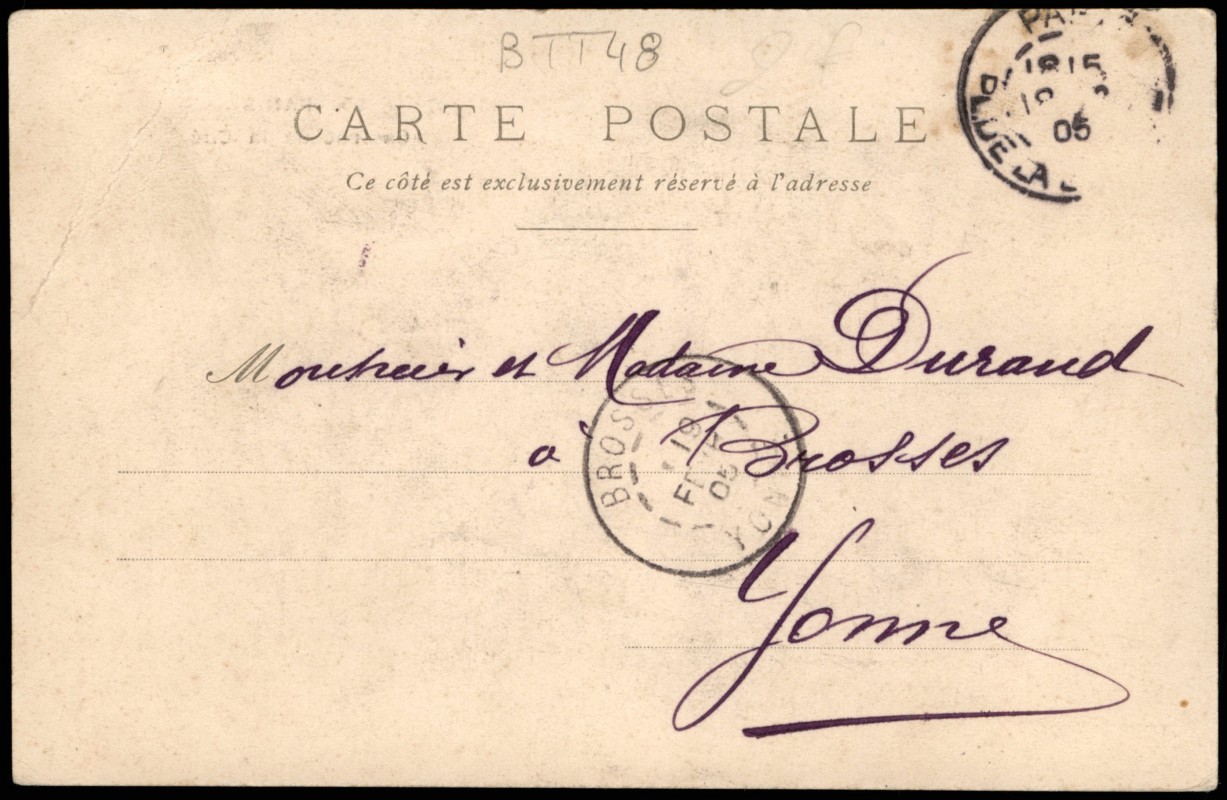 BTT48
CARTE POSTALE
Ce côté est exclusivement réservé à l'adresse
18 15
05
PL. DE LA
Monsieur et Madame Durand
à Brosses
Yonne
BROSSES
19
05
YONNE